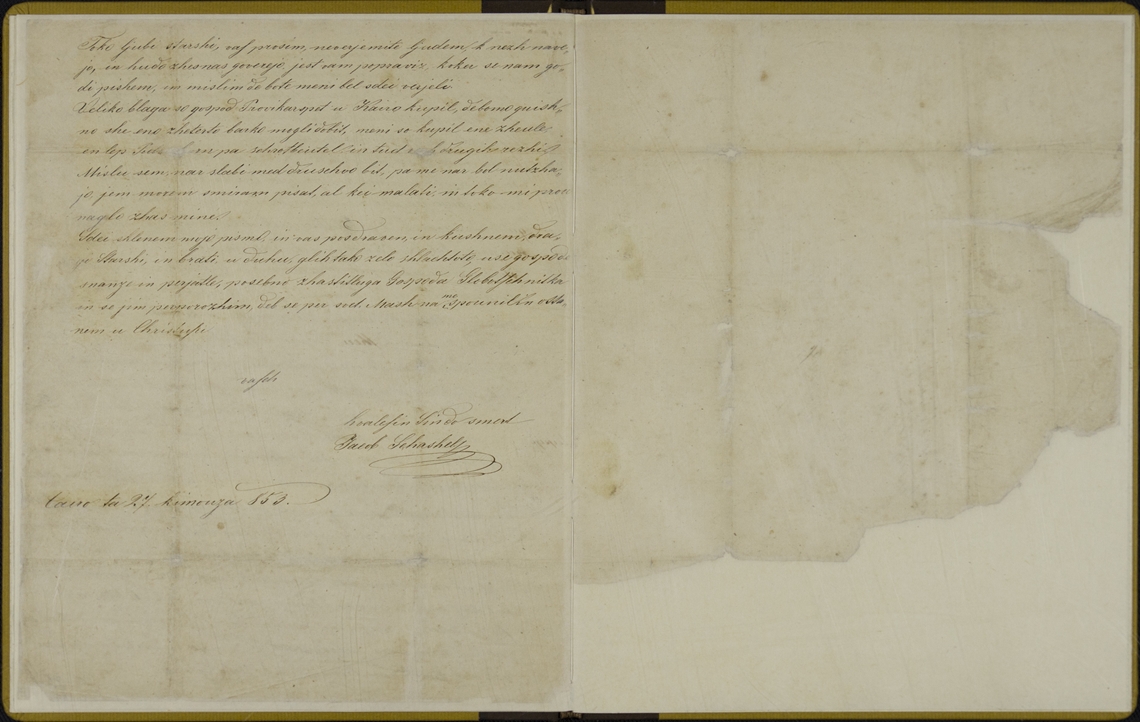 Toke ljubi starshi, vass prosim, neverjemite ljudem, k nezh nave-
jo, in hudo zhes nas govore, jest vam popraviz, koku se nam go-
di pishem, in mislim de bote meni bel sdei verjeli
Veliko blaga so gospod Provikar spet u Kairo kupil, de bomo
she eno zheterto barko mogli dobit, meni so kupil ene
en lep
Mislu sem, nar slabi med drushvo bit, pa me nar bel nutzha-
jo, jem morem smiram pisat, al kei malati, in toko mi pre
naglo zhas mine.
Sdei sklenem moje pisme, in vas posdravem, in kushnem, dra-
ji Starshi, in brati, u duhu, glih tako zelo shlahtoto, use gospode
snanze in perjatle, posebno zhastitliga Gospoda
in se jim perporozhim, deb se per svet. Mash na me spomnil in osta-
nem u Christusu
vash
hvalessin Sin do smert
Jacob Schashel
Cairo ta 27 kimouza 853.